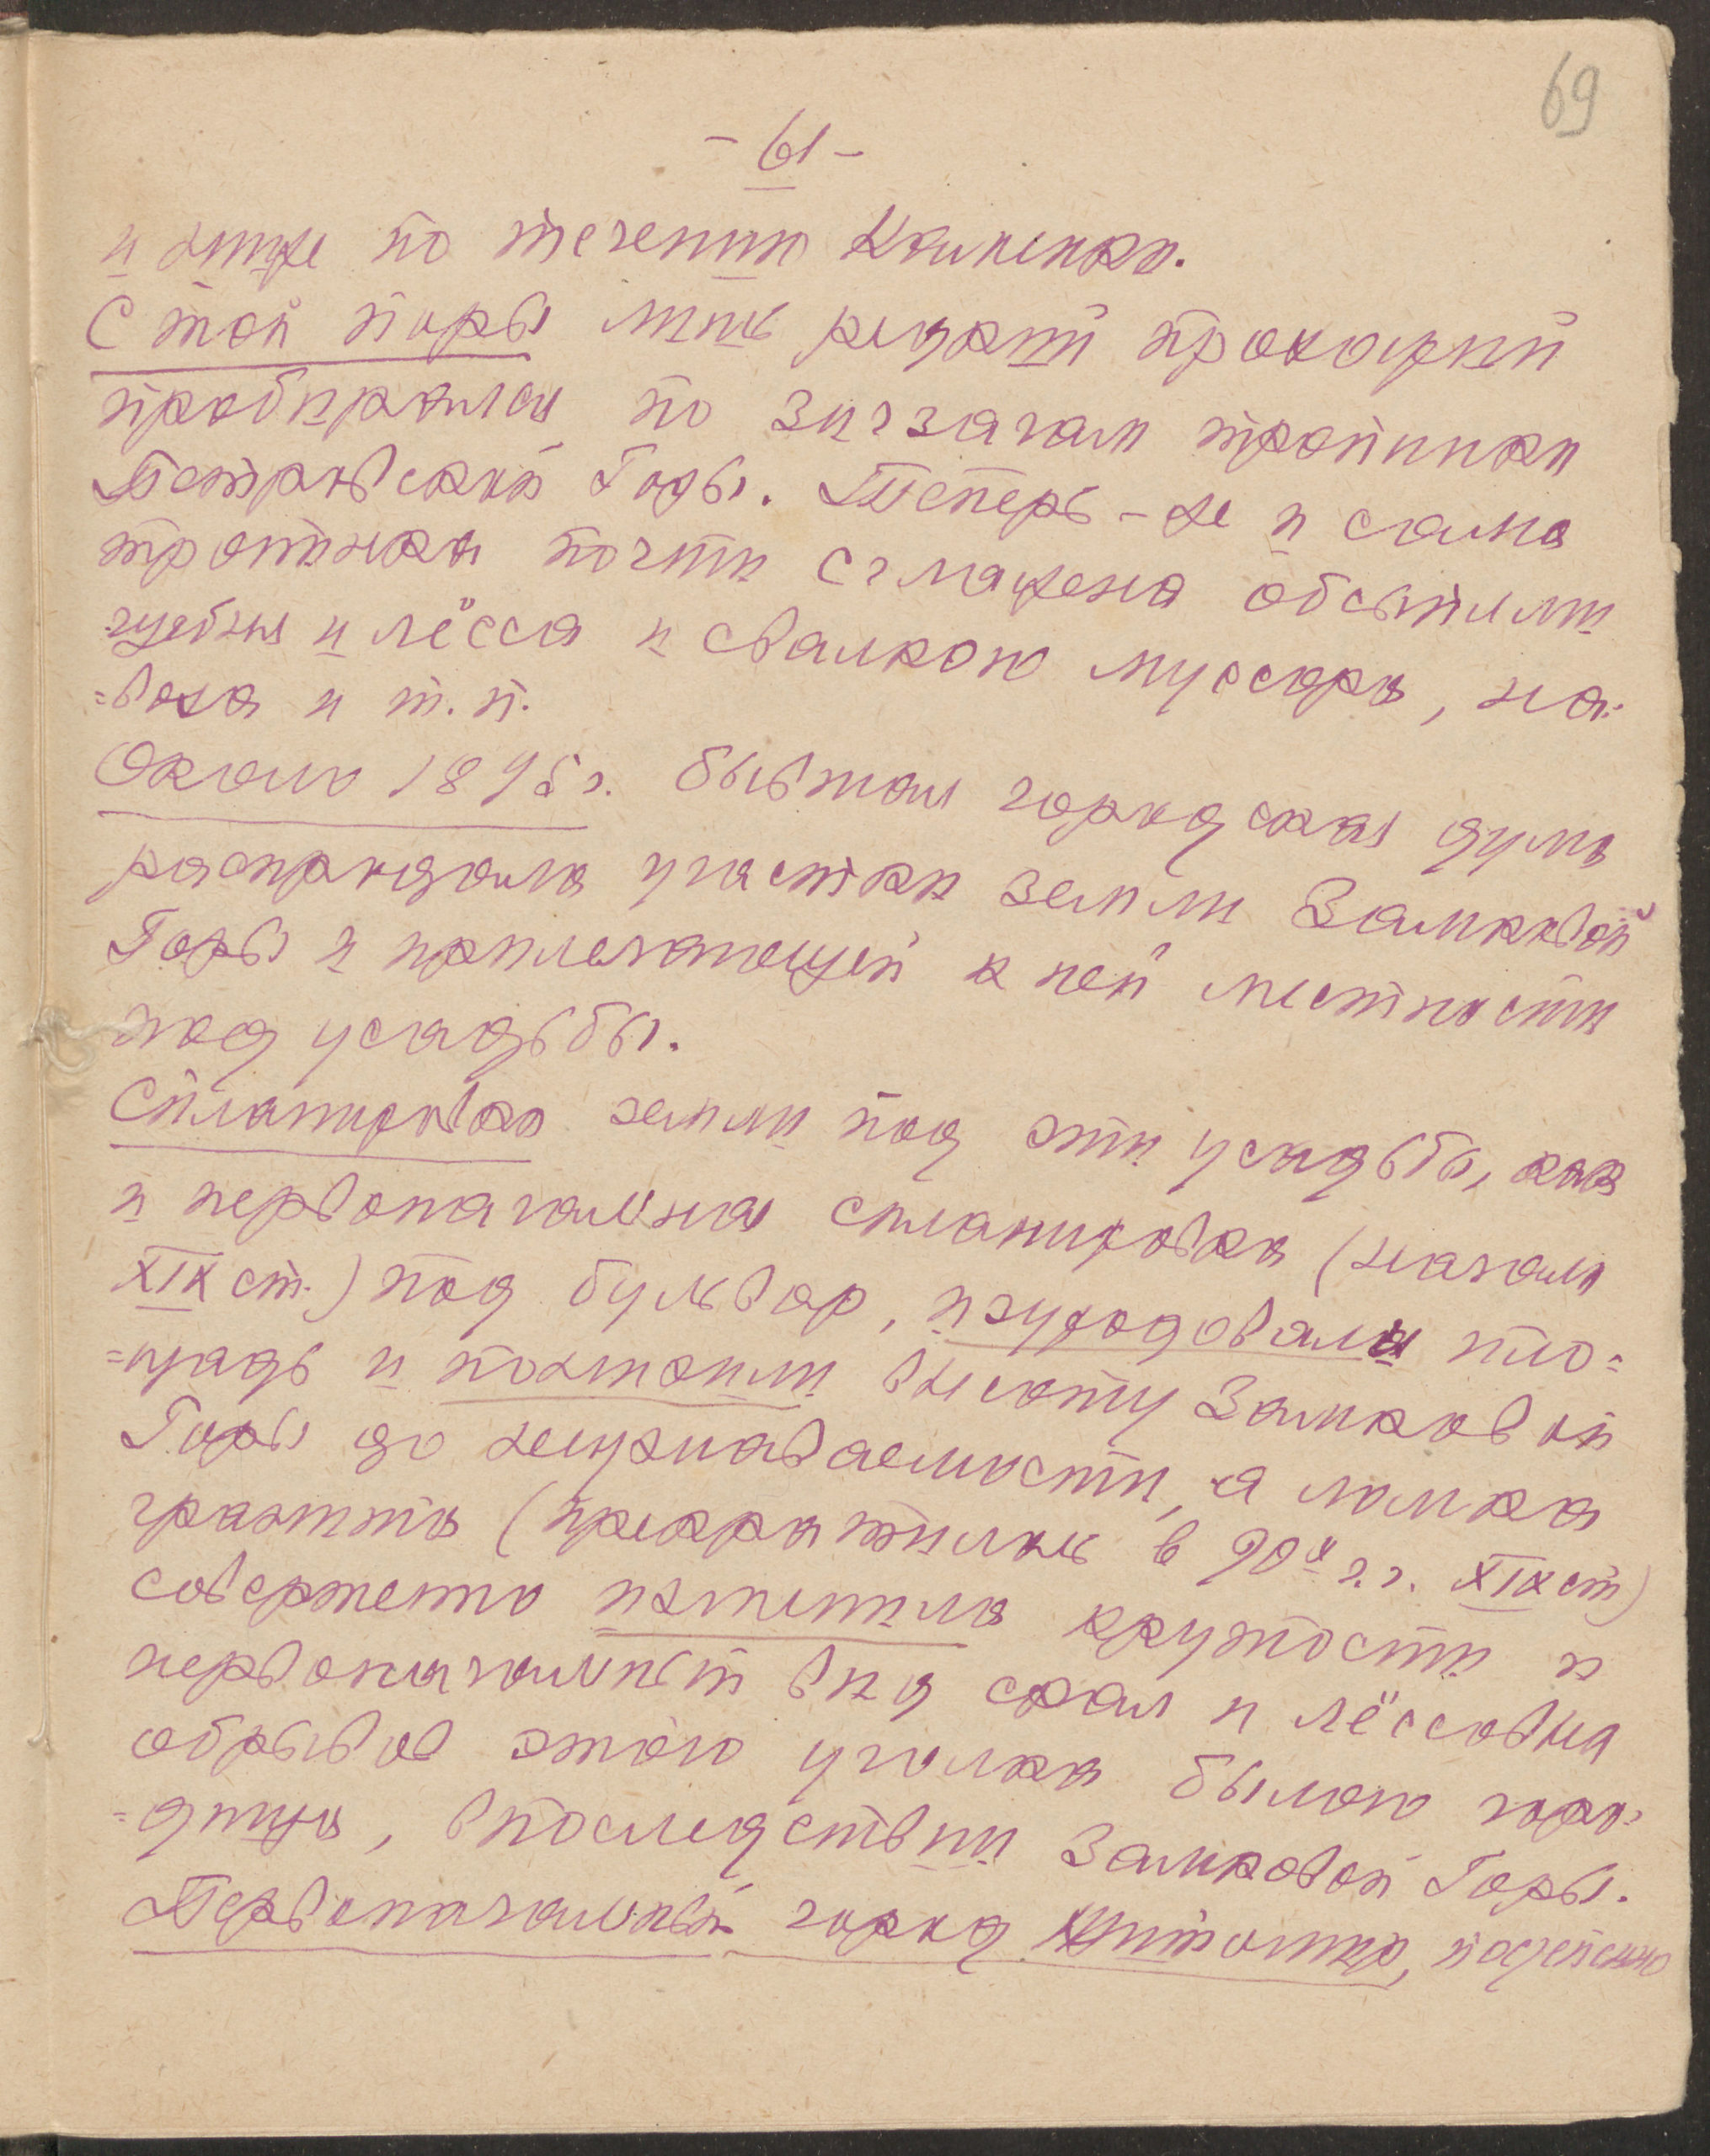 69
- 61 -
и ниже по течению Каменки.
С той поры лишь редкий прохожий
пробирался по зигзагам тропинки
Петровской Горы. Теперь-же и сама
тропинка почти сглажена обсыпями
щебня и лёсса и свалкою муссора, на-
=воза и т. п.
Около 1895 г. бывшая городская дума
распродала участки земли Замковой
Горы и прилегающей к ней местности
под усадьбы.
Сплапировка земли под эти усадьбы, как
и первоначальная спланировка (начала
XIX ст.) под бульвар, изуродовали пло=
=щадь и понизили высоту Замковой
Горы до неузнаваемости, а ломка
гранита (прекратилась в 90х г.г. XIX ст)
совершенно изменила крутости и
первоначальный вид скал и лёссовых
обрывов этого уголка былого горо-
=дища, впоследствии Замковой Горы.
Первоначальный город Житомир, постепенно